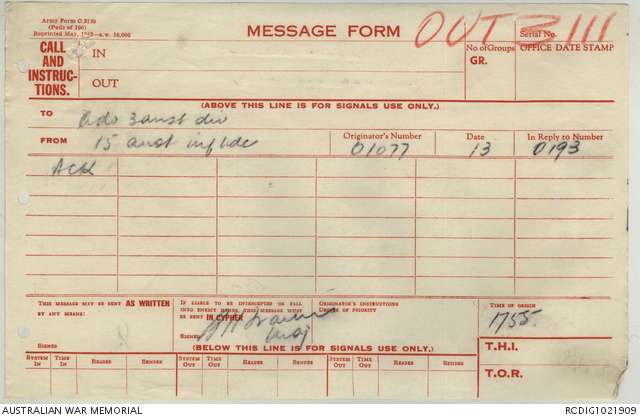 Army Form C.2136
(Pads of 100)
MESSAGE FORM
OUT B 111
Serial No.
CALL AND INSTRUC-TIONS.
IN
OUT
No. of Groups
GR.
OFFICE DATE STAMP
(ABOVE THIS LINE IS FOR SIGNALS USE ONLY.)
TO
Adv 3 aust div
FROM
15 aust inf bde
Originator's Number
01077
Date
13
In Reply to Number
0193
ACK
THIS MESSAGE MAY BE SENT AS WRITTEN
BY ANY MEANS:
SIGNED
IF LIABLE TO BE INTERCEPTED OR FALL
INTO ENEMY HANDS THIS MESSAGE MUST
BE SENT IN CIPHER
SIGNED
Maj
ORIGINATOR'S INSTRUCTIONS
DEGREE OF PRIORITY
TIME OF ORIGIN
1755
(BELOW THIS LINE IS FOR SIGNALS USE ONLY.)
T.H.I.
T.O.R.
SYSTEM IN
TIME IN
READER
SENDER
SYSTEM OUT
TIME OUT
READER
SENDER
SYSTEM OUT
TIME OUT
READER
SENDER
AUSTRALIAN WAR MEMORIAL
RCDIG1021909